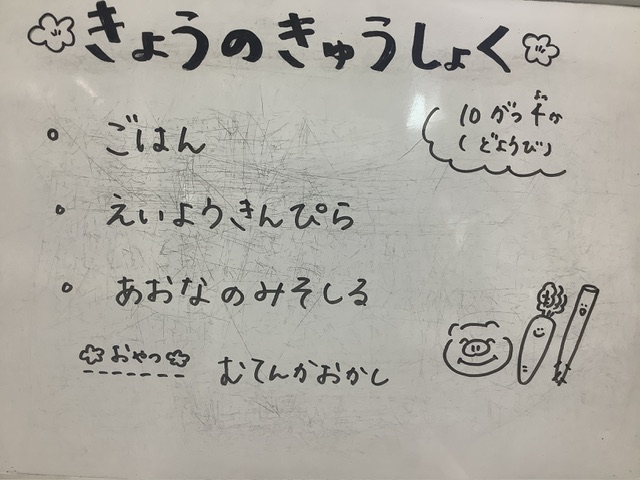 きょうのきゅうしょく
10がつ4か
よっ
(どようび)
ごはん
えいようきんぴら
あおなのみそしる
おやつ むてんかおかし